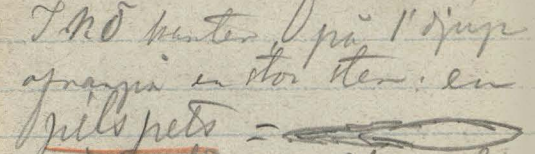 I NÖ kanten, på 1' djup
ofvanpå en stor sten: en
pilspets =